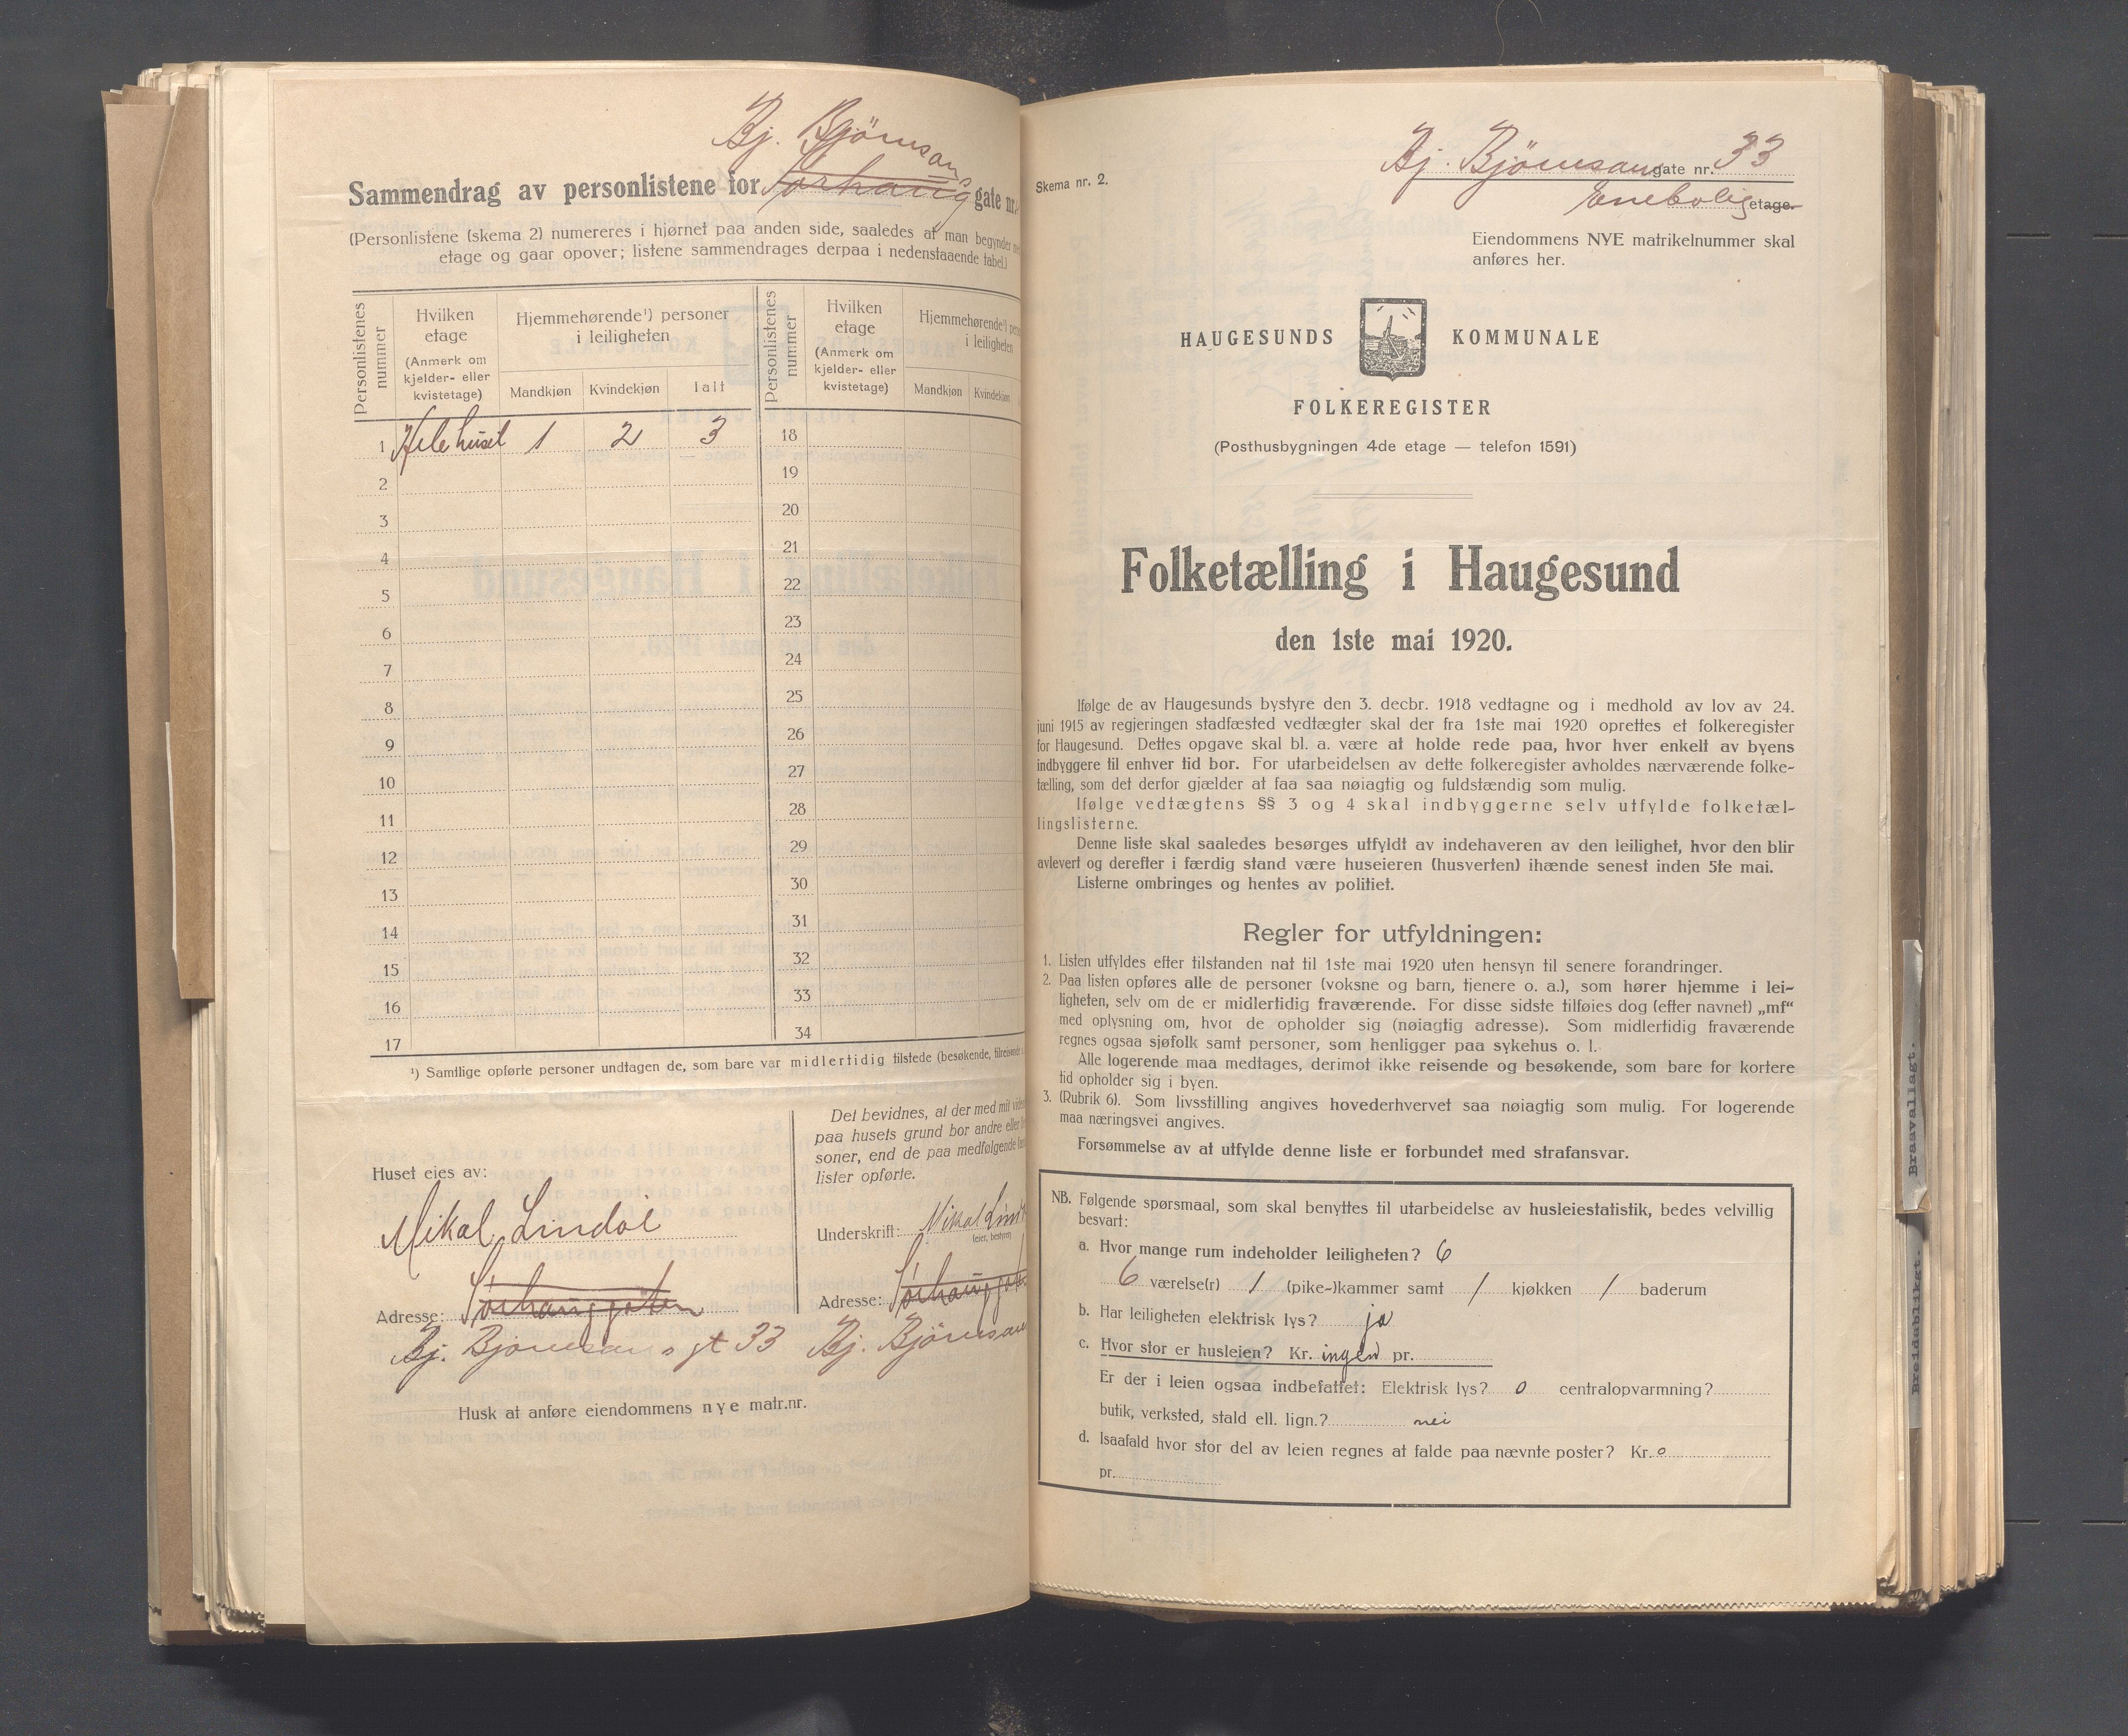 Bj. Bjørnsons
Sammendrag av personlistene for Sørhaug gate nr.
(Personlistene (skema 2) numereres i hjørnet paa anden side, saaledes at man begynder
etage og gaar opover; listene sammendrages derpaa i nedenstaaende tabel.)
Personlistenes nummer
Hvilken etage
(Anmerk om kjelder- eller kvistetage)
Hjemmehørende¹) personer i leiligheten
Mandkjøn Kvindekjøn Ialt
Personlistenes nummer
Hvilken etage
(Anmerk om kjelder- eller kvistetage)
Hjemmehørende¹)
i leiligheten
Mandkjøn Kvindekjøn
1 Hele huset 1 2 3 18
2 19
3 20
4 21
5 22
6 23
7 24
8 25
9 26
10 27
11 28
12 29
13 30
14 31
15 32
16 33
17 34
¹) Samtlige opførte personer undtagen de, som bare var midlertidig tilstede (besøkende, tilreisende
Huset eies av:
Mikal Lindøe
Adresse: Sørhauggaten
Bj. Bjørnsons gt 33
Husk at anføre eiendommens nye matr.nr.
Det bevidnes, at der med mit
paa husets grund bor andre eller
soner, end de paa medfølgende
lister opførte.
Underskrift: Mikal
(eier, bestyrer)
Adresse:
Bj. Bjørnson
Skema nr. 2.
Bj. Bjørnsons gate nr. 33
Enebolig etage.
Eiendommens NYE matrikelnummer skal
anføres her.
HAUGESUNDS KOMMUNALE
FOLKEREGISTER
(Posthusbygningen 4de etage — telefon 1591)
Folketælling i Haugesund
den 1ste mai 1920.
Ifølge de av Haugesunds bystyre den 3. decbr. 1918 vedtagne og i medhold av lov av 24.
juni 1915 av regjeringen stadfæsted vedtægter skal der fra 1ste mai 1920 oprettes et folkeregister
for Haugesund. Dettes opgave skal bl. a. være at holde rede paa, hvor hver enkelt av byens
indbyggere til enhver tid bor. For utarbeidelsen av dette folkeregister avholdes nærværende folke-
tælling, som det derfor gjælder at faa saa nøiagtig og fuldstændig som mulig.
Ifølge vedtægtens §§ 3 og 4 skal indbyggerne selv utfylde folketæl-
lingslisterne.
Denne liste skal saaledes besørges utfyldt av indehaveren av den leilighet, hvor den blir
avlevert og derefter i færdig stand være huseieren (husverten) ihænde senest inden 5te mai.
Listerne ombringes og hentes av politiet.
Regler for utfyldningen:
1. Listen utfyldes efter tilstanden nat til 1ste mai 1920 uten hensyn til senere forandringer.
2. Paa listen opføres alle de personer (voksne og barn, tjenere o. a.), som hører hjemme i lei-
ligheten, selv om de er midlertidig fraværende. For disse sidste tilføies dog (efter navnet) „mf“
med oplysning om, hvor de opholder sig (nøiagtig adresse). Som midlertidig fraværende
regnes ogsaa sjøfolk samt personer, som henligger paa sykehus o. l.
Alle logerende maa medtages, derimot ikke reisende og besøkende, som bare for kortere
tid opholder sig i byen.
3. (Rubrik 6). Som livsstilling angives hovederhvervet saa nøiagtig som mulig. For logerende
maa næringsvei angives.
Forsømmelse av at utfylde denne liste er forbundet med strafansvar.
NB. Følgende spørsmaal, som skal benyttes til utarbeidelse av husleiestatistik, bedes velvillig
besvart:
a. Hvor mange rum indeholder leiligheten? 6
6 værelse(r) 1 (pike-)kammer samt 1 kjøkken 1 baderum
b. Har leiligheten elektrisk lys? ja
c. Hvor stor er husleien? Kr. ingen pr.
Er der i leien ogsaa indbefattet: Elektrisk lys? 0 centralopvarmning?
butik, verksted, stald ell. lign.? nei
d. Isaafald hvor stor del av leien regnes at falde paa nævnte poster? Kr. 0
pr.
Braavallagt.
Breidablikgt.